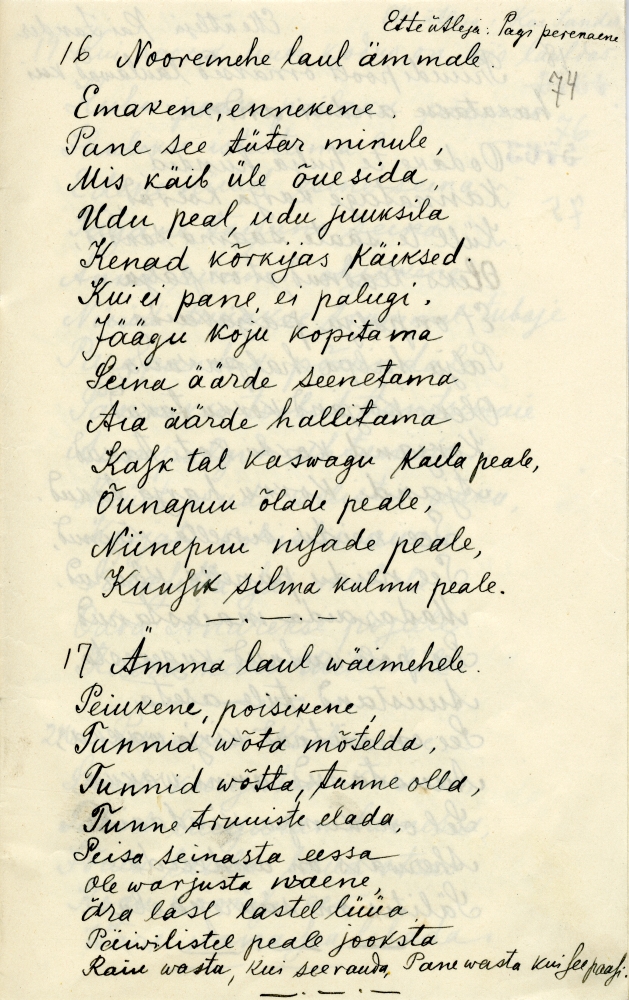 Etteütleja: Pagi perenaene
16 Nooremehe laul ämmale.
74
Emakene, ennekene.
Pane see tütar minule,
Mis käib üle õuesida,
Udu peal, udu juuksila
Kenad kõrkijas käiksed.
Kui ei pane, ei palugi.
Jäägu koju kopitama
Seina äärde seenetama
Aia äärde hallitama
Kask tal kaswagu kaela peale,
Õunapuu õlade peale,
Niinepuu nisade peale,
Kuusik silma kulmu peale.
17 Ämma laul wäimehele.
Peiukene, poisikene,
Tunnid wõta mõtelda,
Tunnid wõtta, tunne olla,
Tunne truuiste elada,
Seisa seinasta eessa
Ole warjusta waene,
Ära lase lastel lüüa
Päiwilistel peale jooksta
Raiu wasta, kui see rauda, Pane wasta kui see paasi.